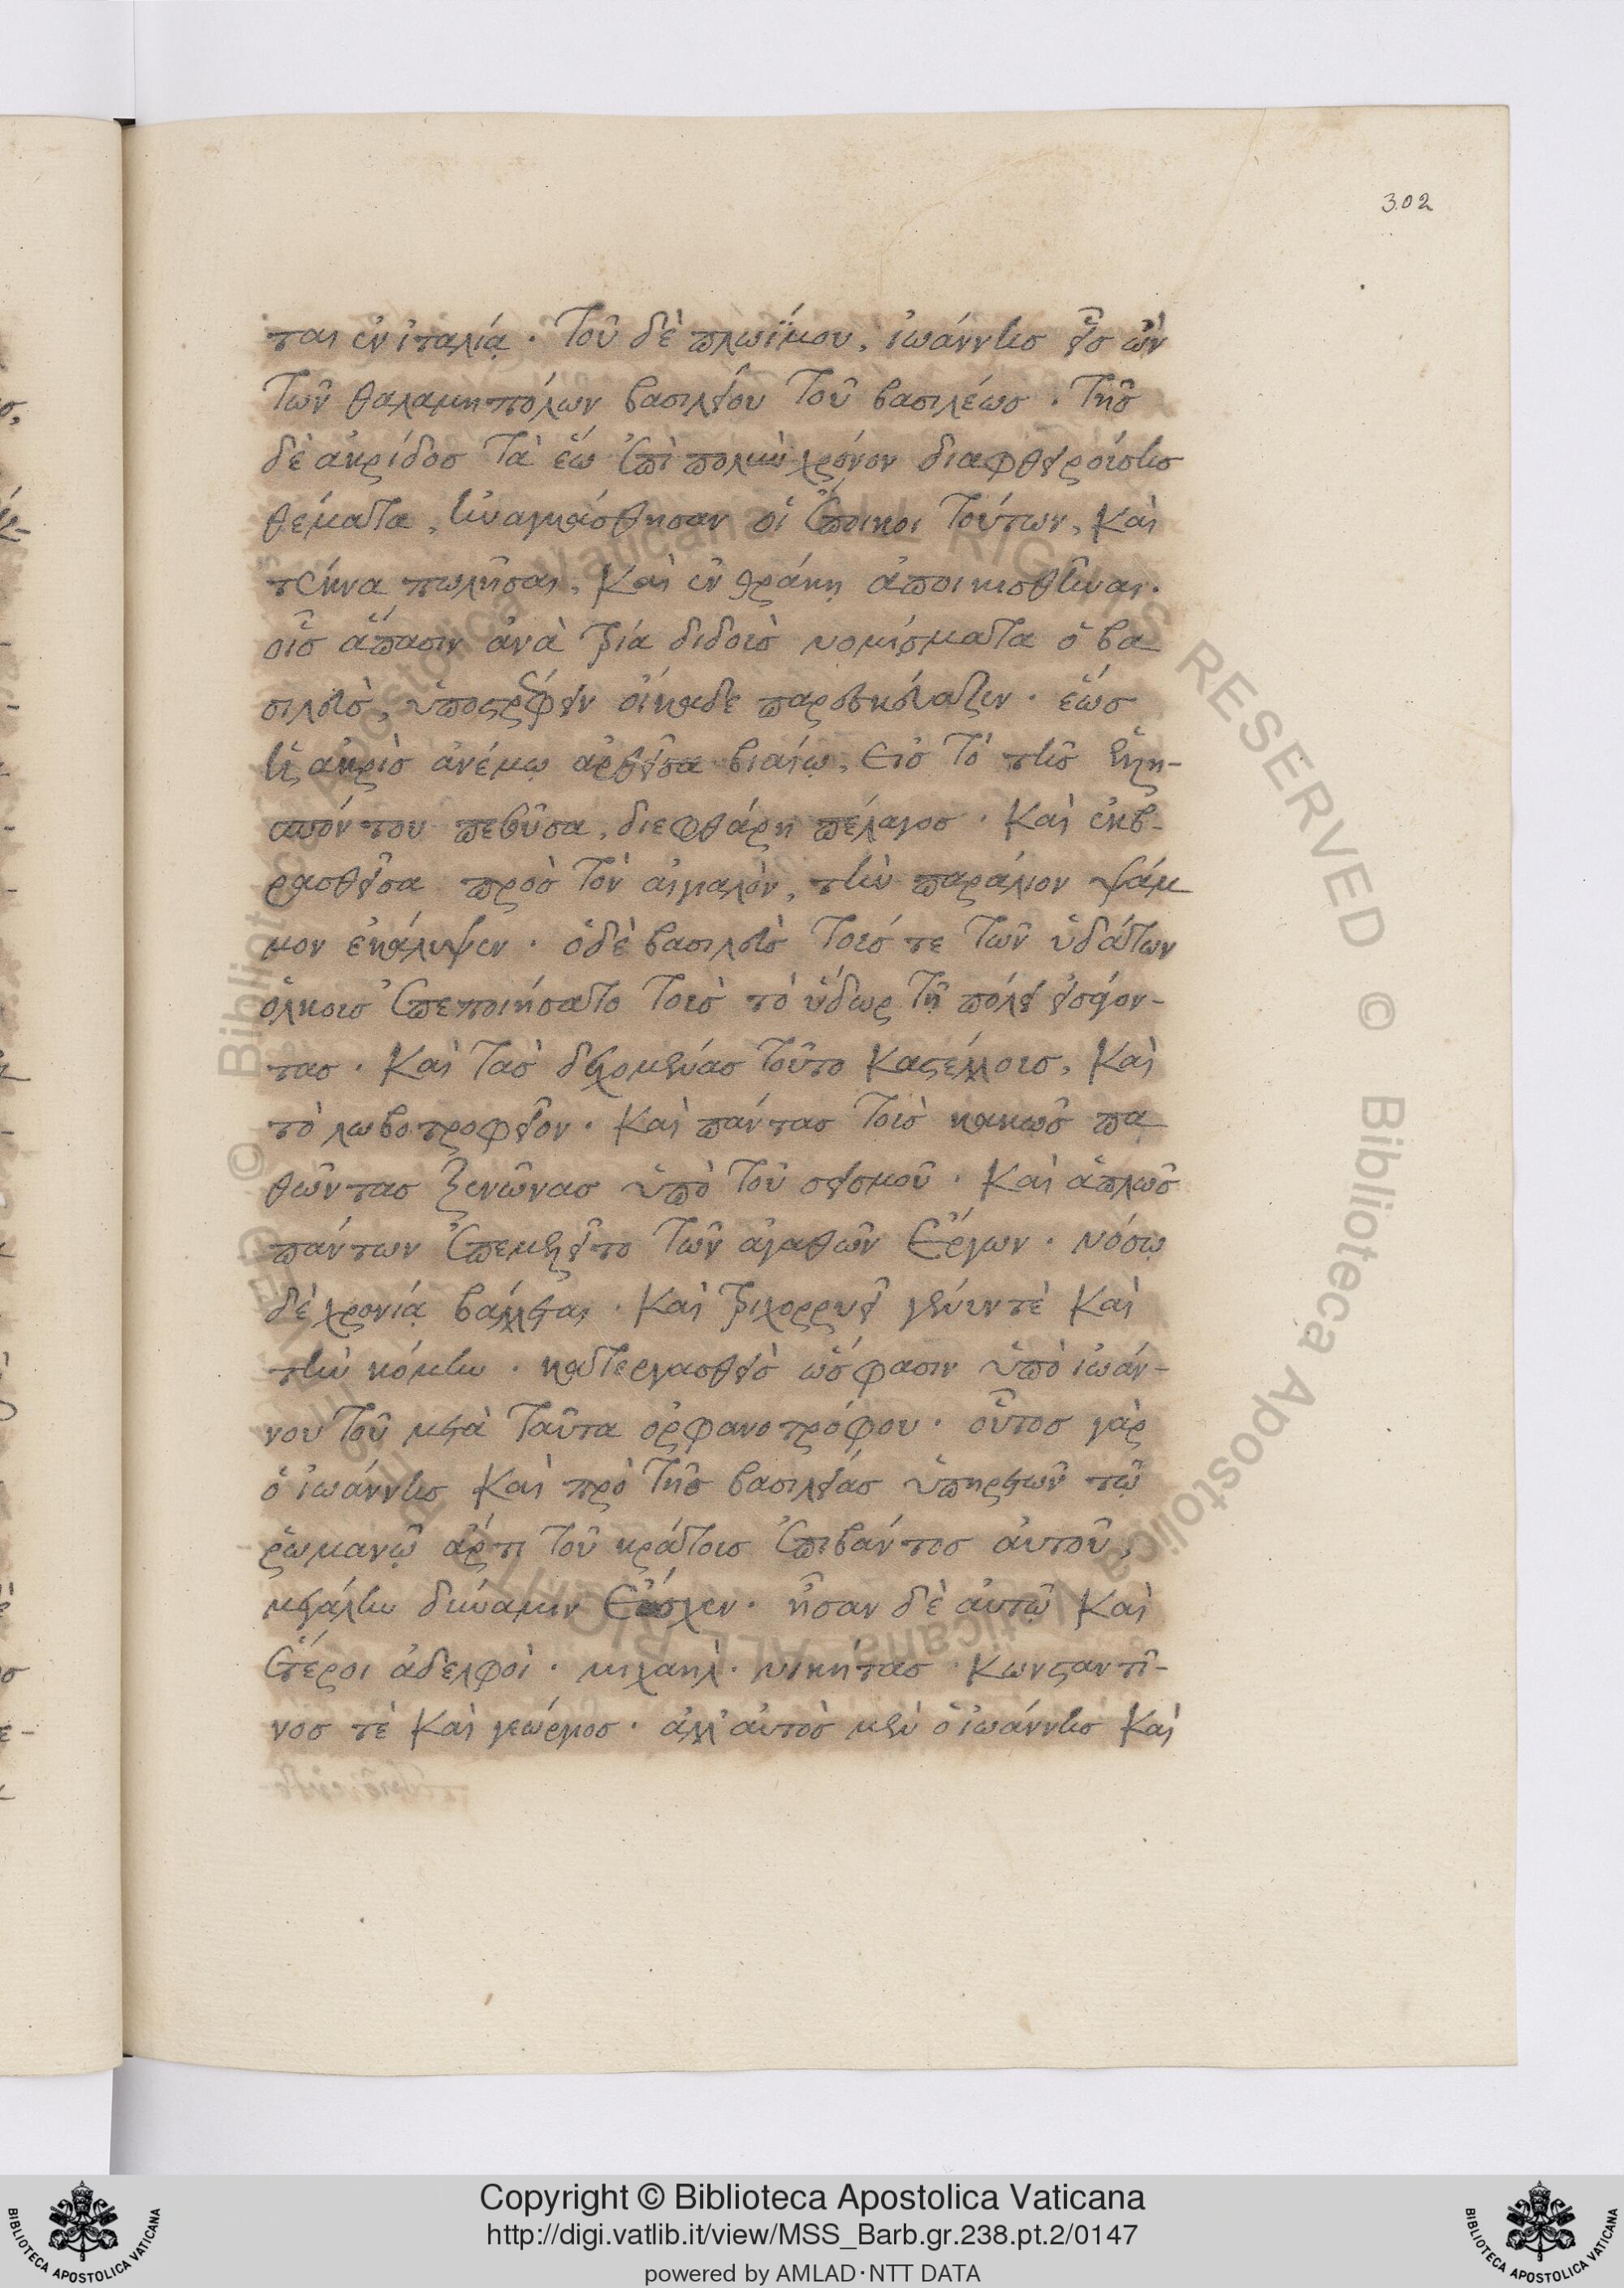 302
ται ἐν ἰταλίᾳ · τοῦ δὲ πλωΐμου, ἰωάννης εἷς ὢν
τῶν θαλαμηπόλων βασιλείου τοῦ βασιλέως · τῆς
δὲ ἀκρίδος τὰ ἑῶ ἐπὶ πολὺν χρόνον διαφθειρούσης
θέματα, ἠναγκάσθησαν οἱ ἔποικοι τούτων, καὶ
τέκνα πωλῆσαι, καὶ ἐν θράκῃ ἀποικισθῆναι.
οἷς ἅπασιν ἀνὰ τρία διδοὺς νομίσματα ὁ βα
σιλεὺς, ὑποστρέφειν οἴκαδε παρεσκεύαζεν · ἕως
ἡ ἀκρὶς ἀνέμῳ ἀρθεῖσα βιαίῳ, εἰς τὸ τῆς ἑλλη-
σπόντου πεσοῦσα, διεφθάρη πέλαγος · καὶ ἐκβ-
ρασθεῖσα πρὸς τὸν αἰγιαλὸν, τὴν παράλιον ψάμ
μον ἐκάλυψεν · ὁ δὲ βασιλεὺς τούς τε τῶν ὑδάτων
ὁλκοὺς ἐπεποιήσατο τοὺς τὸ ὕδωρ τῇ πόλει εἰσάγον-
τας · καὶ τὰς δεχομένας τοῦτο καστέλλους, καὶ
τὸ λωβοτροφεῖον · καὶ πάντας τοὺς κακῶς πα
θῶντας ξενῶνας ὑπὸ τοῦ σεισμοῦ · καὶ ἁπλῶς
πάντων ἐπεμελεῖτο τῶν ἀγαθῶν ἔργων · νόσῳ
δὲ χρονίᾳ βάλλεται · καὶ τριχορρυεῖ γένυν τὲ καὶ
τὴν κόμην · κατεργασθεὶς ὥς φασιν ὑπὸ ἰωάν-
νου τοῦ μετὰ ταῦτα ὀρφανοτρόφου · οὗτος γὰρ
ὁ ἰωάννης καὶ πρὸ τῆς βασιλείας ὑπηρετῶν τῷ
ῥωμανῷ ἄρτι τοῦ κράτους ἐπιβάντος αὐτοῦ,
μεγάλην δύναμιν ἔσχεν · ἦσαν δὲ αὐτῷ καὶ
ἕτεροι ἀδελφοὶ · μιχαηλ · νικήτας · κωνσταντῖ-
νος τὲ καὶ γεώργιος · ἀλλ' αὐτὸς μὲν ὁ ἰωάννης καὶ
© Biblioteca Apostolica Vaticana ALL RIGHTS RESERVED
Copyright © Biblioteca Apostolica Vaticana
http://digi.vatlib.it/view/MSS_Barb.gr.238.pt.2/0147
powered by AMLAD·NTT DATA
BIBLIOTECA APOSTOLICA VATICANA
BIBLIOTECA APOSTOLICA VATICANA